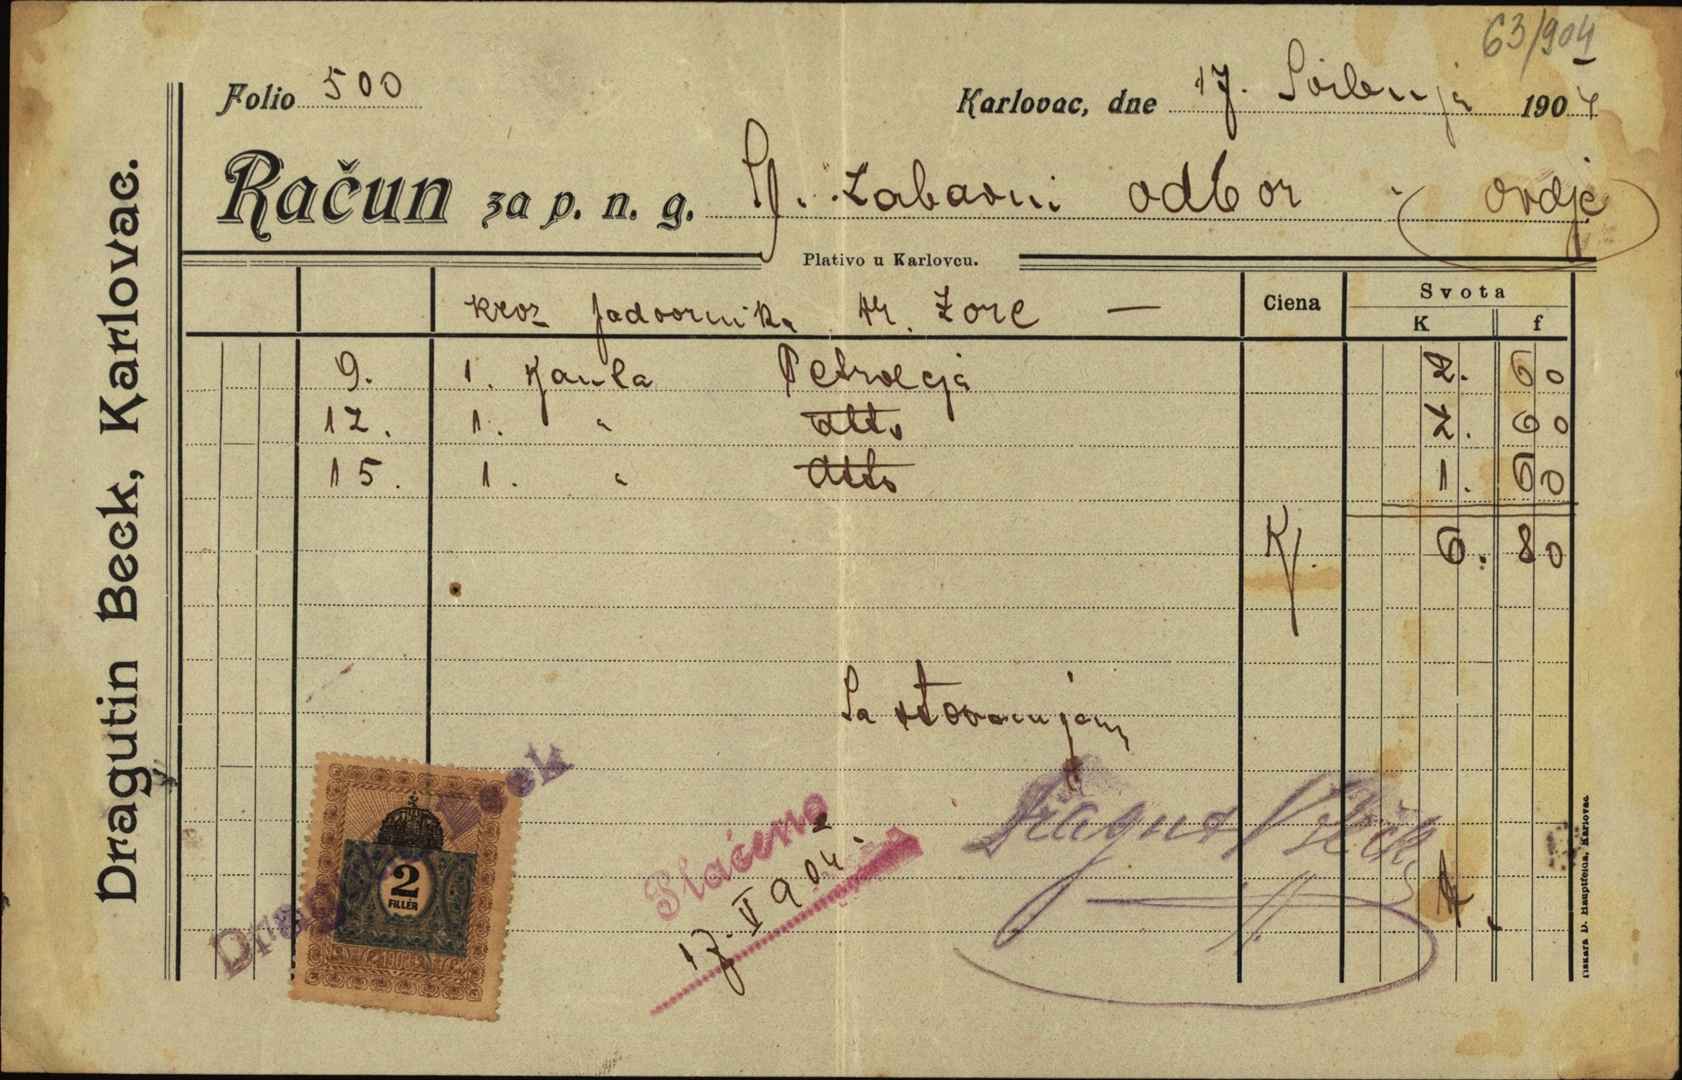 63/904
Folio 500
Karlovac, dne 17. Svibnja 1904
Račun za p. n. g. Sl. Zabavni odbor ovdje
Plativo u Karlovcu.
Dragutin Beck, Karlovac.
kroz podvornika Zorc —
Ciena
Svota
K f
9. 1. Kanta Petroleja 2. 60
12. 1. " dtto 2. 60
15. 1. " dtto 1. 60
K 6. 80
Sa štovanjem
Dragutin Beck
Dragutin Beck
2
FILLÉR
1903
Plaćeno
17. V 904.
Tiskara D. Hauptfelda, Karlovac